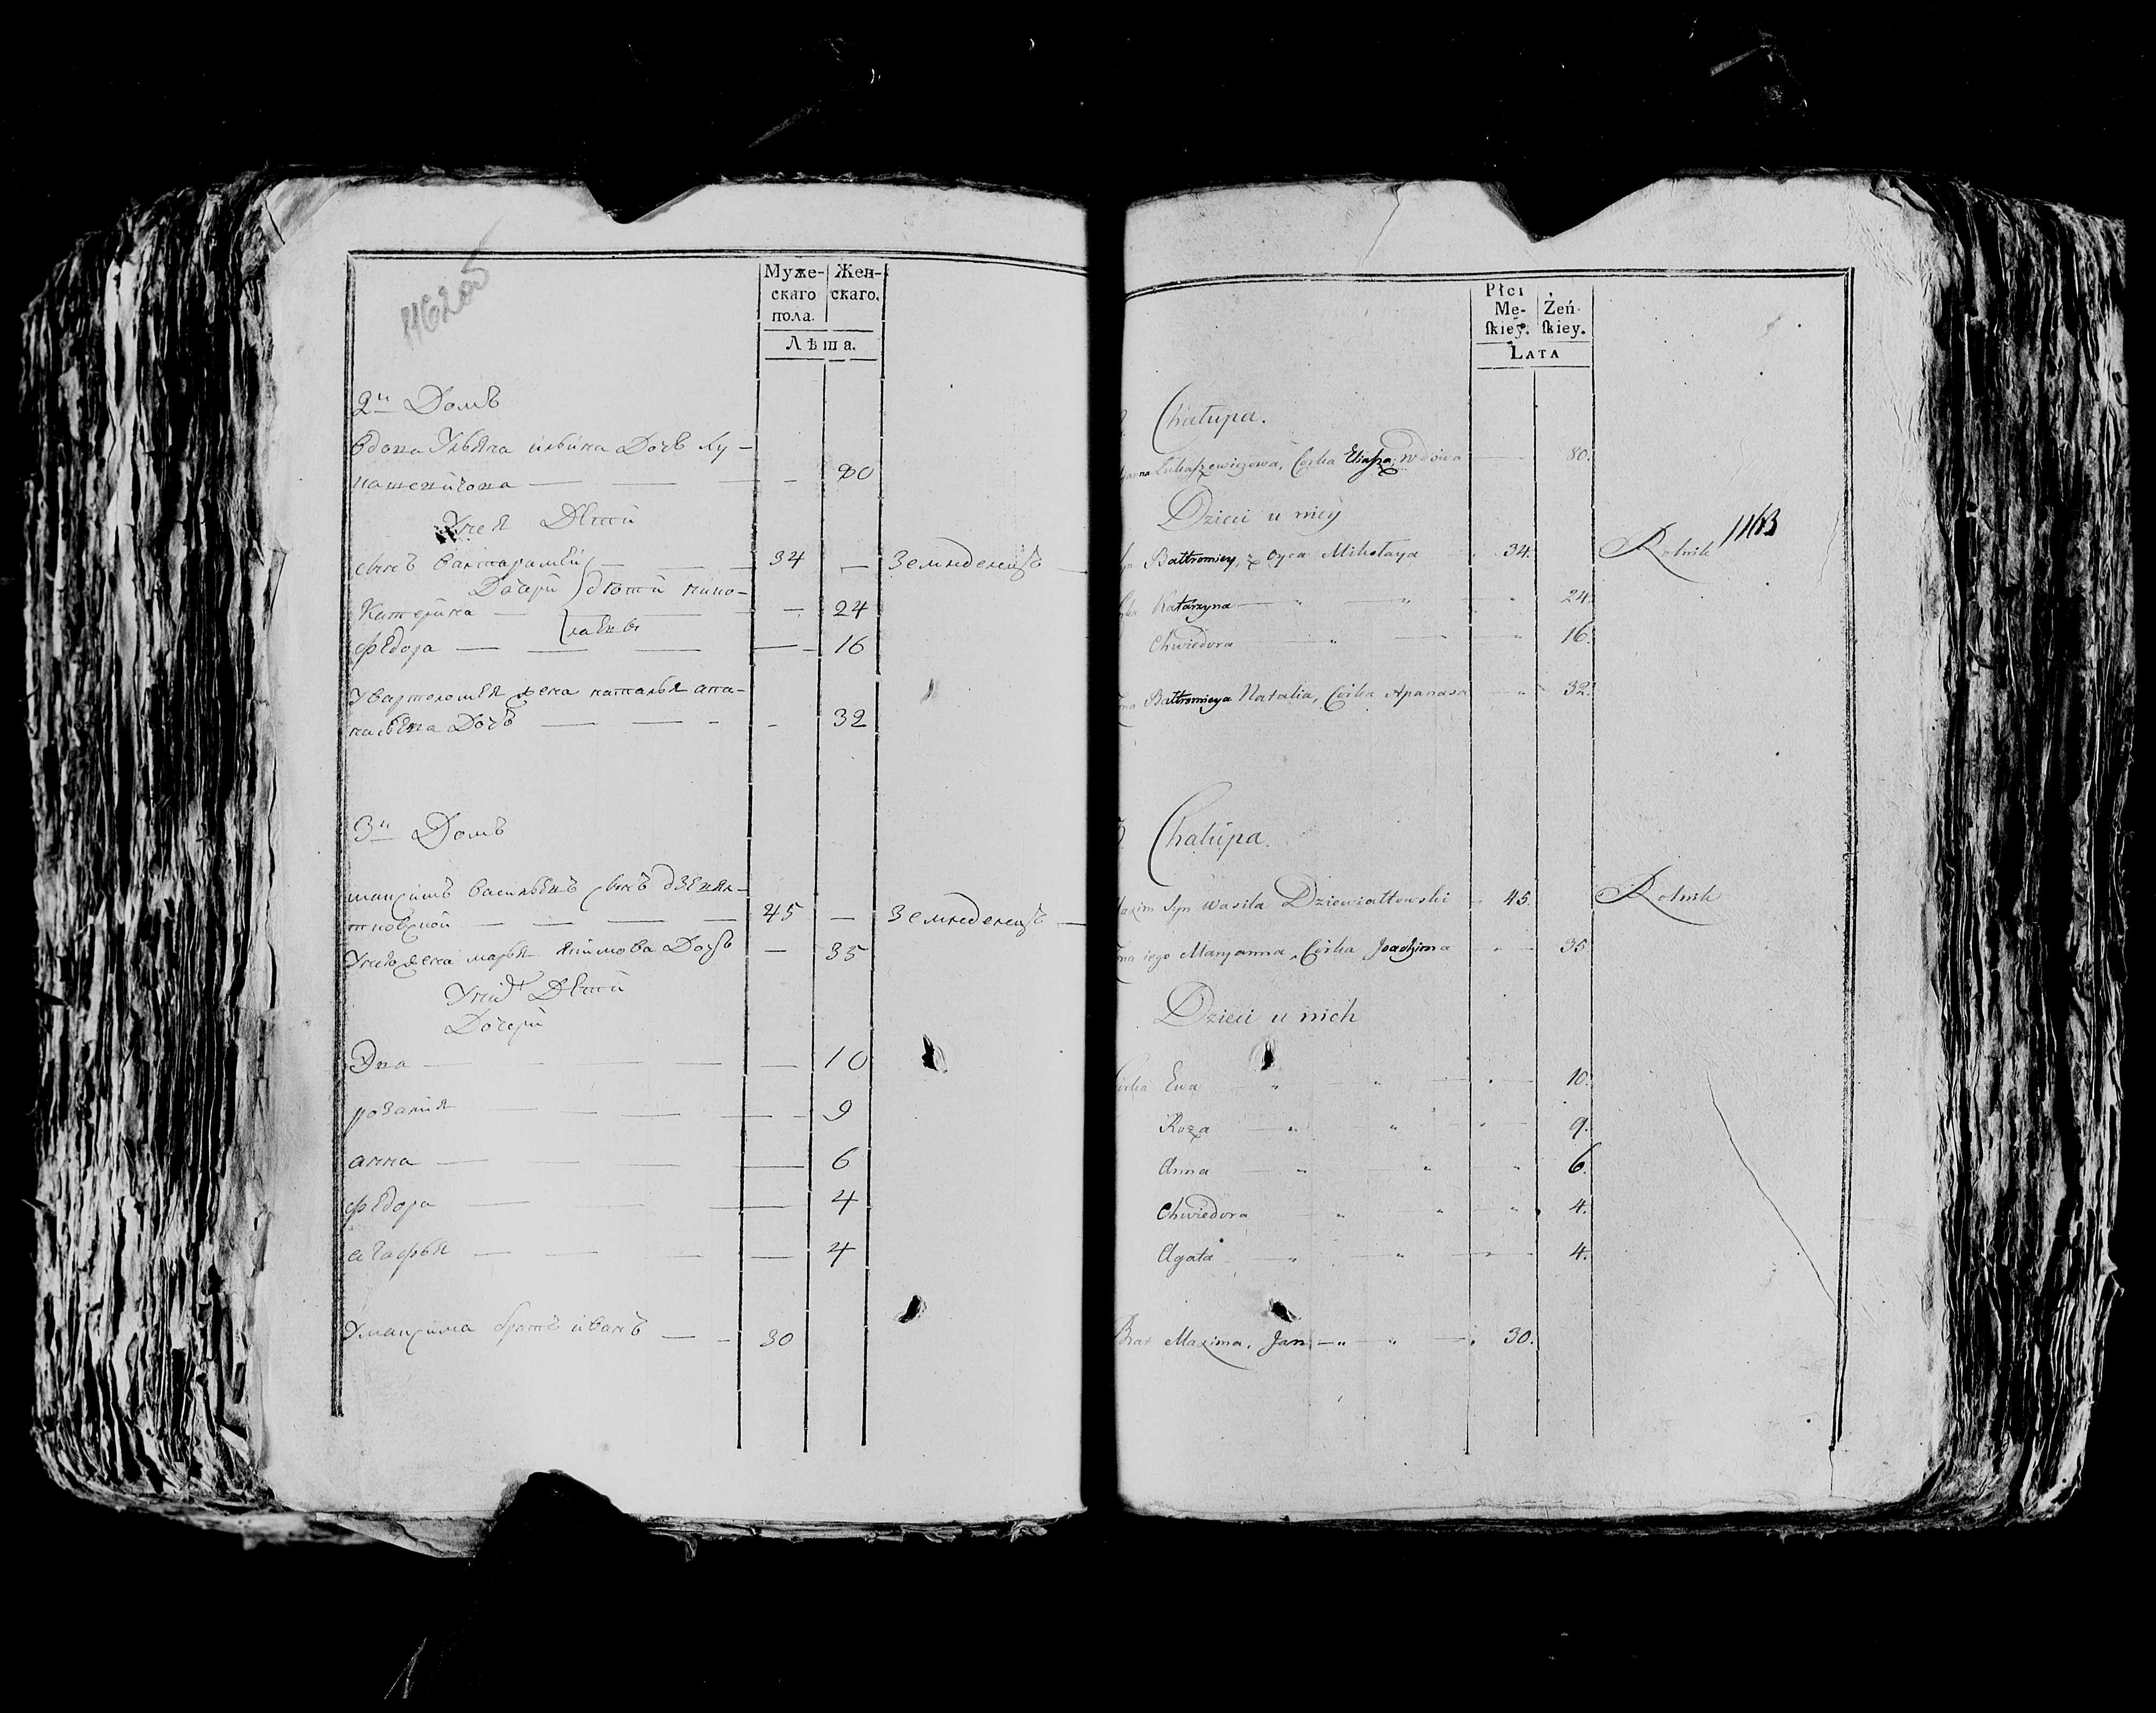 1162об
Муже- Жен-
скаго скаго.
пола.
Лѣта.
2й Домъ
вдова Ульяна ильина Дочь Лу-
кашевичова — — — 80
У нея Дѣти
сынъ Варфаламей — — 34 — Земледелецъ —
Дочери
Катерина — — — 24
Фѣдора — — — — 16
У Вартоломея жена наталья апа-
насѣва Дочь — — - - 32
3й Домъ
максимъ васильевъ сынъ дзевял-
товской — — — 45 — Земледелецъ —
У него жена марья якимова Дочь — 35
У них Дѣти
Дочери
Эва — — — — 10
розалия — — — — 9
анна — — — — 6
фѣдора — — — 4
агафья — — — — 4
У максима братъ иванъ — - 30
Płci
Mę- Żeń-
ſkiey. ſkiey.
LATA
Chałupa.
Łukaszewiczowa, Corka Eliasza, wdowa — 80.
Dzieci u niey
1163
Bałtromiey, z oyca Mikołaya 34. Rolnik
Katarzyna — " — " " 24.
Chwiedora " — " " 16.
Bałtromieya Natalia, Córka Apanasa — " 32.
3 Chałupa.
Maxim Syn Wasila Dziewiałtowski — 45. Rolnik
iego Maryanna, Córka Joachima " — 35
Dzieci u nich
Córka Ewa " " — . — 10.
Roza — " " " — 9.
Anna — " " " 6.
Chwiedora " " " . 4.
Agata — " " — " — 4.
Brat Maxima, Jan — " " — . 30.